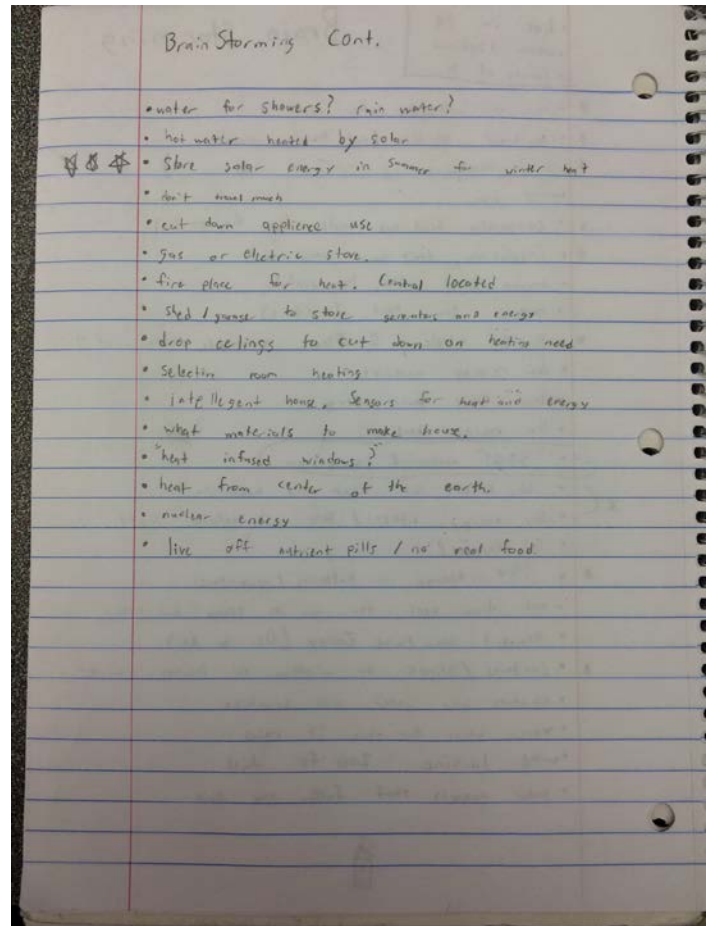 Brain Storming Cont.
• water for showers? rain water?
• hot water heated by solar
• Store solar energy in summer for winter heat
• don't travel much
• cut down applience use
• gas or electric stove.
• fire place for heat. Central located
• shed / garage to store generators and energy
• drop celings to cut down on heating need
• Selectin room heating
• intellegent house. Sensors for heat and energy
• what materials to make house.
• "heat infused windows?"
• heat from center of the earth.
• nuclear energy
• live off nutrient pills / no real food.